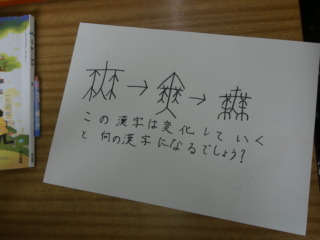 → →
この漢字は変化していく
と何の漢字になるでしょう?